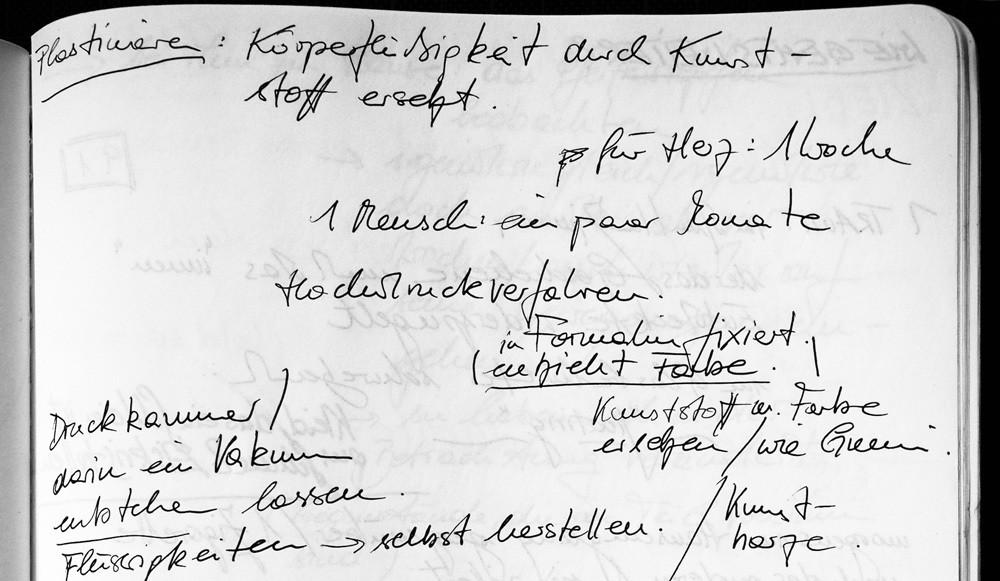 Plastinieren: Körperflüssigkeit durch Kunst-
stoff ersetzt.
für Herz: 1 Woche
1 Mensch: ein paar Monate
Hochdruckverfahren.
in Formalin fixiert.
(entzieht Farbe.)
Kunststoff m. Farbe
ersetzen / wie Gummi.
Druckkammer /
darin ein Vakuum
entstehen lassen.
Flüssigkeiten → selbst herstellen
/ Kunst-
harze.